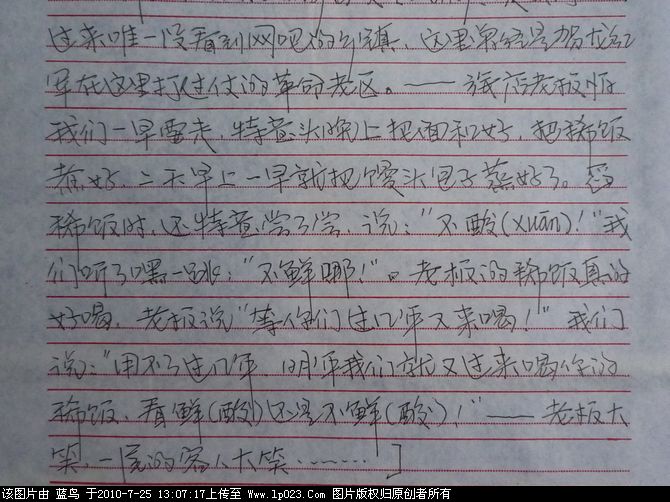 过来唯一没看到网吧的乡镇，这里曾经是贺龙红
军在这里打过仗的革命老区。——旅店老板怕
我们一早要走，特意头晚上把面和好，把稀饭
煮好，二天早上一早就把馒头包子蒸好了。舀
稀饭时，还特意尝了尝，说："不酸(xuān)！"我
们听了嘿一跳："不鲜哪！"。老板的稀饭真的
好喝，老板说"等你们过几年又来喝！"我们
说："用不了过几年，明年我们就又过来喝你的
稀饭，看鲜(酸)还是不鲜(酸)！"——老板大
笑，一屋的客人大笑………]
该图片由 蓝鸟 于2010-7-25 13:07:17上传至 Www.lp023.Com 图片版权归原创者所有